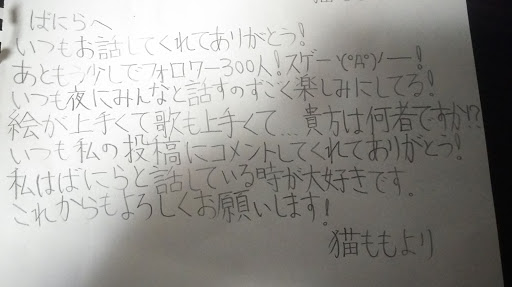 ばにらへ
いつもお話してくれてありがとう!
あともう少しでフォロワー300人!スゲーヽ(°A°)ノー!
いつも夜にみんなと話すのすごく楽しみにしてる!
絵が上手くて歌も上手くて…貴方は何者ですか!?
いつも私の投稿にコメントしてくれてありがとう!
私はばにらと話している時が大好きです。
これからもよろしくお願いします!
猫ももより